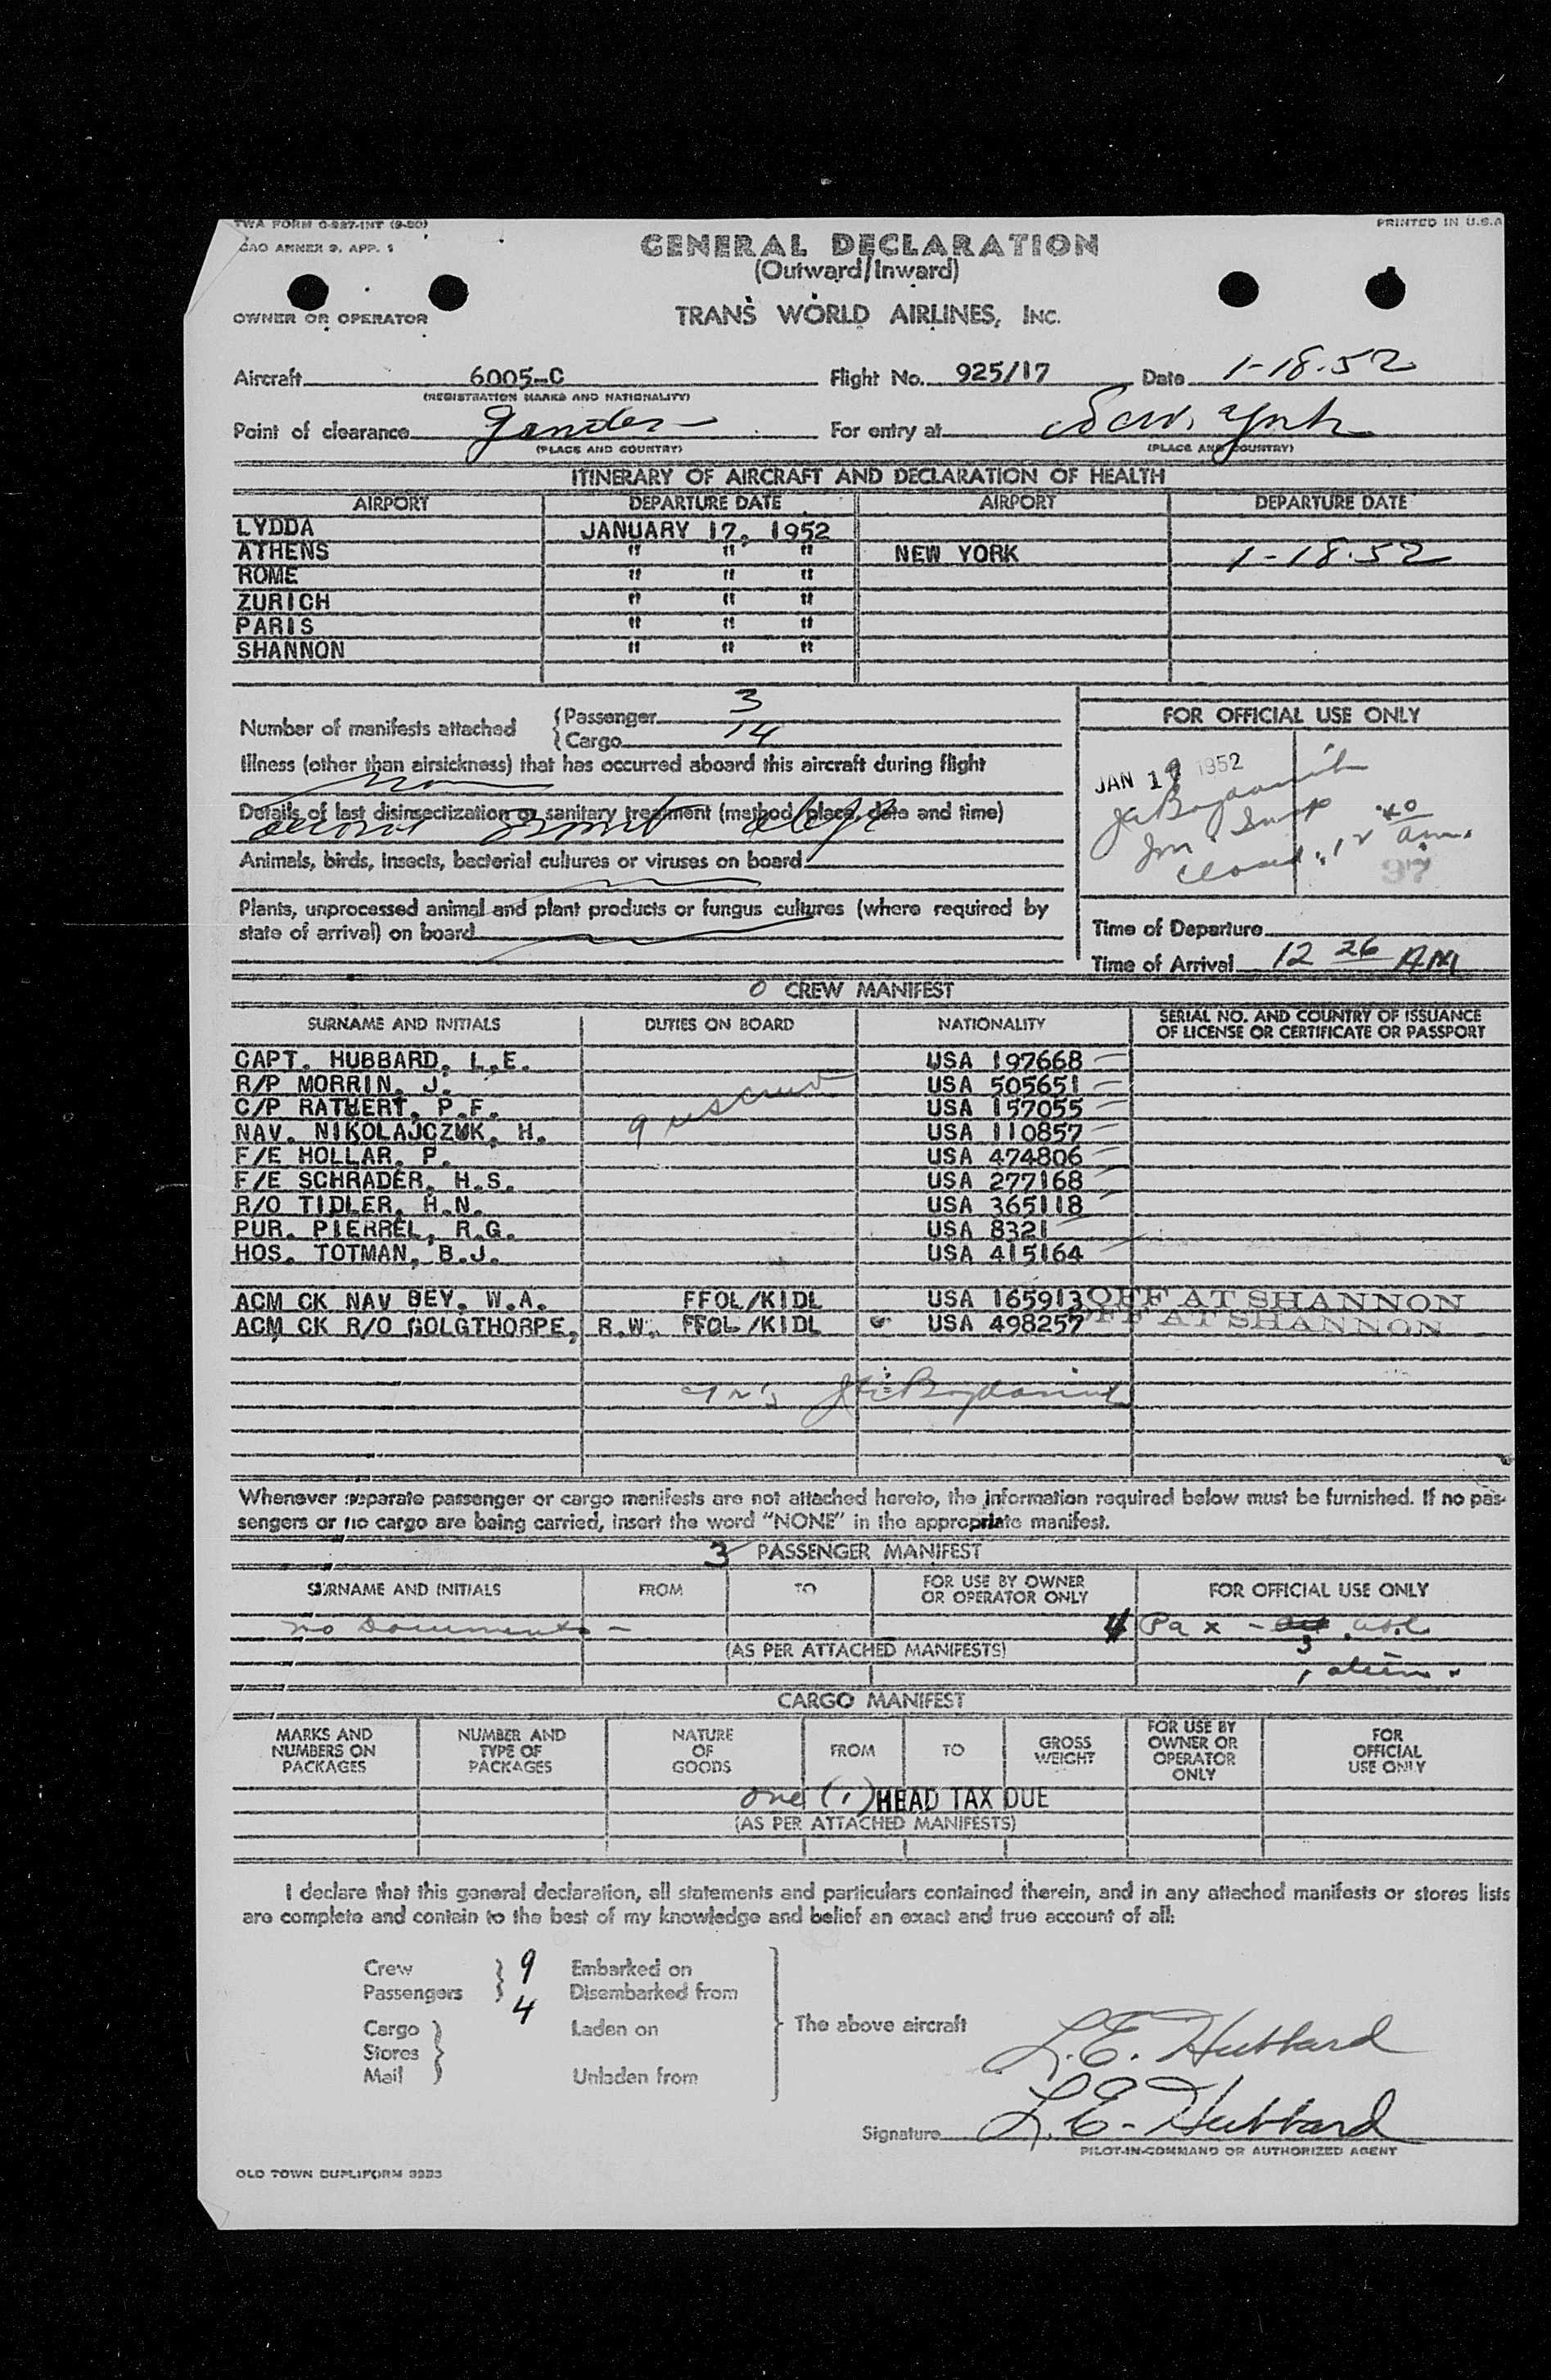 TWA FORM O-927-INT (9-50)
PRINTED IN U.S.A
ICAO ANNEX 9, APP. 1
GENERAL DECLARATION
(Outward/Inward)
OWNER OR OPERATOR
TRANS WORLD AIRLINES, INC.
Aircraft 6005-C Flight No. 925/17 Date 1-18-52
(REGISTRATION MARKS AND NATIONALITY)
Point of clearance Gander For entry at New York
(PLACE AND COUNTRY) (PLACE AND COUNTRY)
ITINERARY OF AIRCRAFT AND DECLARATION OF HEALTH
AIRPORT DEPARTURE DATE AIRPORT DEPARTURE DATE
LYDDA JANUARY 17, 1952
ATHENS " " " NEW YORK 1-18-52
ROME " " "
ZURICH " " "
PARIS " " "
SHANNON " " "
Number of manifests attached { Passenger 3
{ Cargo 14
Illness (other than airsickness) that has occurred aboard this aircraft during flight
Details of last disinsectization or sanitary treatment (method, place, date and time)
Animals, birds, insects, bacterial cultures or viruses on board
Plants, unprocessed animal and plant products or fungus cultures (where required by
state of arrival) on board
FOR OFFICIAL USE ONLY
JAN 1 1952
Imm Insp
Closed 12 40 am.
97
Time of Departure
Time of Arrival 12 26 AM
0 CREW MANIFEST
SURNAME AND INITIALS DUTIES ON BOARD NATIONALITY SERIAL NO. AND COUNTRY OF ISSUANCE
OF LICENSE OR CERTIFICATE OR PASSPORT
CAPT. HUBBARD, L.E. USA 197668
R/P MORRIN, J. USA 505651
C/P RATHERT, P.F. USA 157055
NAV. NIKOLAJCZUK, H. 9 uscrew USA 110857
F/E HOLLAR, P. USA 474806
F/E SCHRADER, H.S. USA 277168
R/O TIDLER, H.N. USA 365118
PUR. PIERREL, R.G. USA 8321
HOS. TOTMAN, B.J. USA 415164
ACM CK NAV BEY, W.A. FFOL/KIDL USA 165913 OFF AT SHANNON
ACM CK R/O GOLGTHORPE, R.W. FFOL/KIDL USA 498257 OFF AT SHANNON
Whenever separate passenger or cargo manifests are not attached hereto, the information required below must be furnished. If no pas-
sengers or no cargo are being carried, insert the word "NONE" in the appropriate manifest.
3 PASSENGER MANIFEST
SURNAME AND INITIALS FROM TO FOR USE BY OWNER
OR OPERATOR ONLY FOR OFFICIAL USE ONLY
no Documents - 4 Pax - 3 usc
(AS PER ATTACHED MANIFESTS)
1 alien
CARGO MANIFEST
MARKS AND
NUMBERS ON
PACKAGES
NUMBER AND
TYPE OF
PACKAGES
NATURE
OF
GOODS
FROM
TO
GROSS
WEIGHT
FOR USE BY
OWNER OR
OPERATOR
ONLY
FOR
OFFICIAL
USE ONLY
one (1) HEAD TAX DUE
(AS PER ATTACHED MANIFESTS)
I declare that this general declaration, all statements and particulars contained therein, and in any attached manifests or stores lists
are complete and contain to the best of my knowledge and belief an exact and true account of all:
Crew 9 Embarked on
Passengers 4 Disembarked from
Cargo Laden on The above aircraft
Stores
Mail Unladen from
L.E. Hubbard
Signature L.E. Hubbard
PILOT-IN-COMMAND OR AUTHORIZED AGENT
OLD TOWN DUPLIFORM 9923